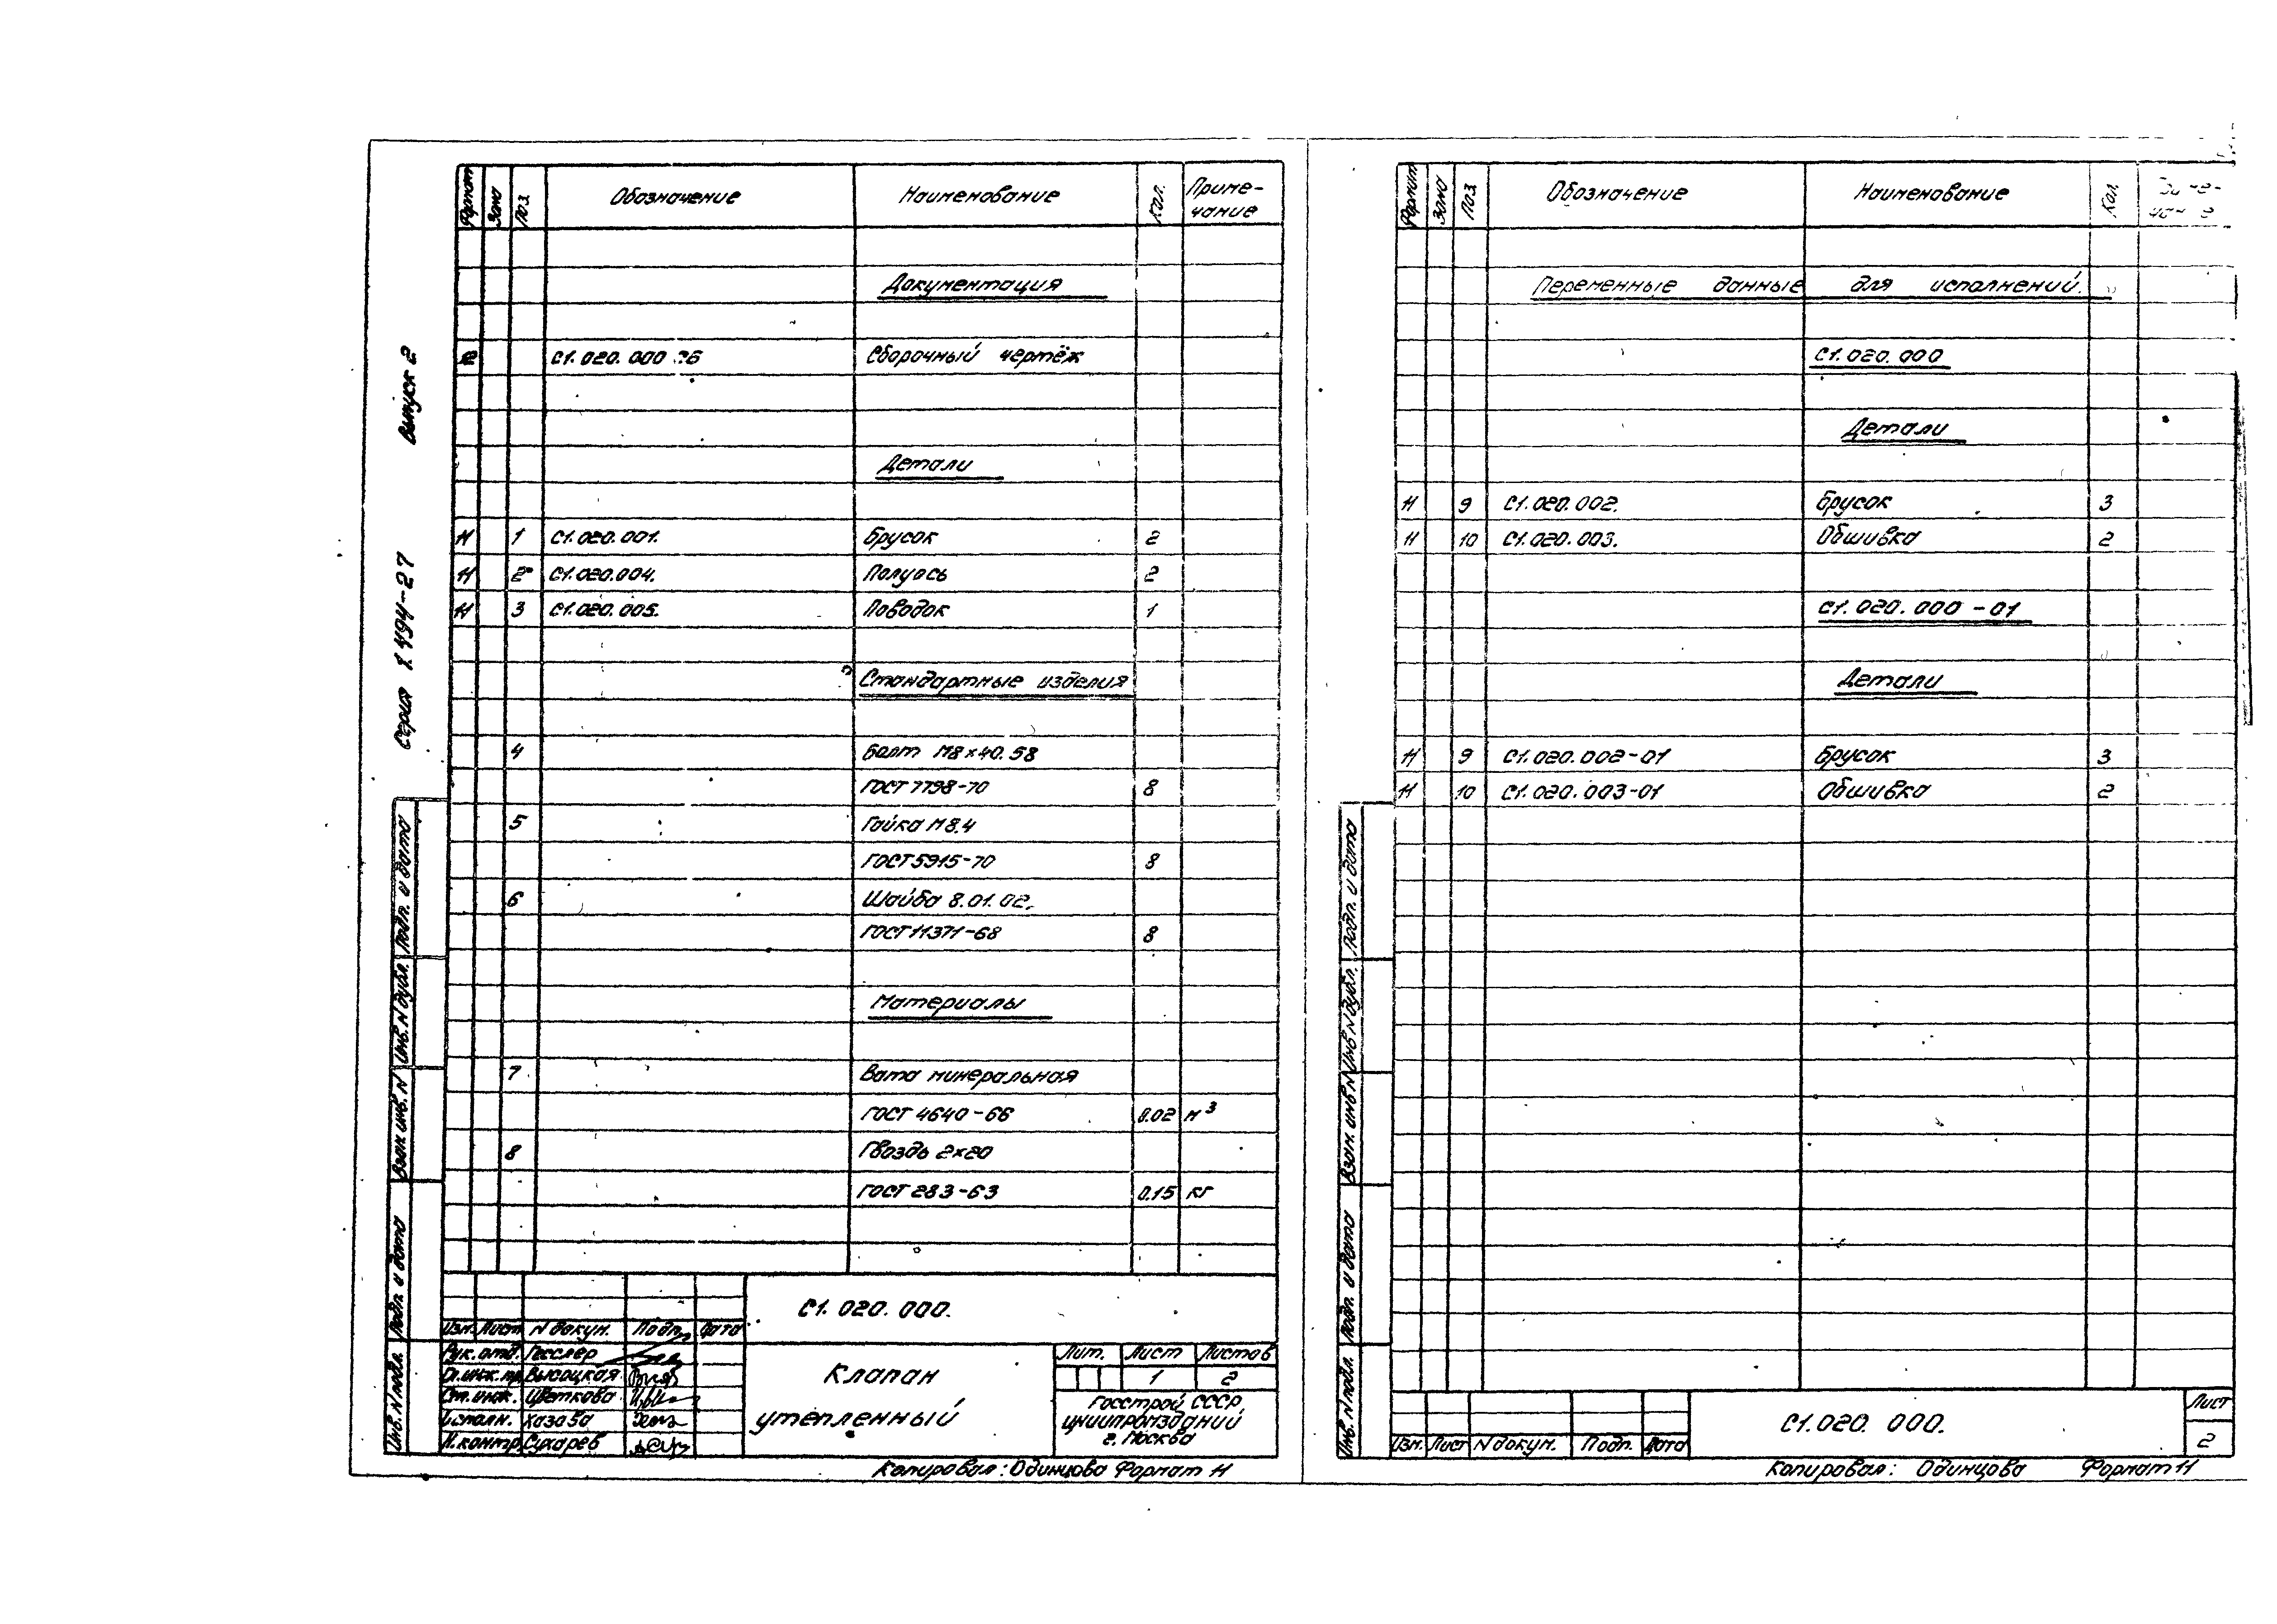 Серия 1.494-27 Выпуск 2
Формат Зона Поз. Обозначение Наименование Кол. Приме-
чание
Документация
С1.020.000 СБ Сборочный чертёж
Детали
11 1 С1.020.001. Брусок 2
11 2 С1.020.004. Полуось 2
11 3 С1.020.005. Поводок 1
Стандартные изделия
4 Болт М8×40.58
ГОСТ 7798-70 8
5 Гайка М8.4
ГОСТ 5915-70 8
6 Шайба 8.01.02.
ГОСТ 11371-68 8
Материалы
7 Вата минеральная
ГОСТ 4640-66 0.02 м³
8 Гвоздь 2×20
ГОСТ 283-63 0.15 кг
Подп. и дата
Инв. N дубл.
Взам. инв. N
Подп. и дата
Инв. N подл.
С1.020.000.
Изм. Лист N докум. Подп. Дата
Рук. отд. Гесслер
Гл. инж. пр. Высоцкая
Ст. инж. Цветкова
Исполн. Хазова
Н. контр. Сухарев
Клапан
утепленный
Лит. Лист Листов
1 2
Госстрой СССР
ЦНИИпромзданий
г. Москва
Копировал: Одинцова Формат 11
Формат Зона Поз. Обозначение Наименование Кол.
Переменные данные для исполнений.
С1.020.000
Детали
11 9 С1.020.002. Брусок 3
11 10 С1.020.003. Обшивка 2
С1.020.000-01
Детали
11 9 С1.020.002-01 Брусок 3
11 10 С1.020.003-01 Обшивка 2
Подп. и дата
Инв. N дубл.
Взам. инв. N
Подп. и дата
Инв. N подл.
Изм. Лист N докум. Подп. Дата
С1.020.000.
Лист
2
Копировал: Одинцова Формат 11